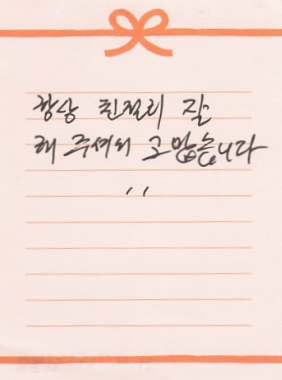 항상 친절히 잘
해 주셔서 고맙습니다
''